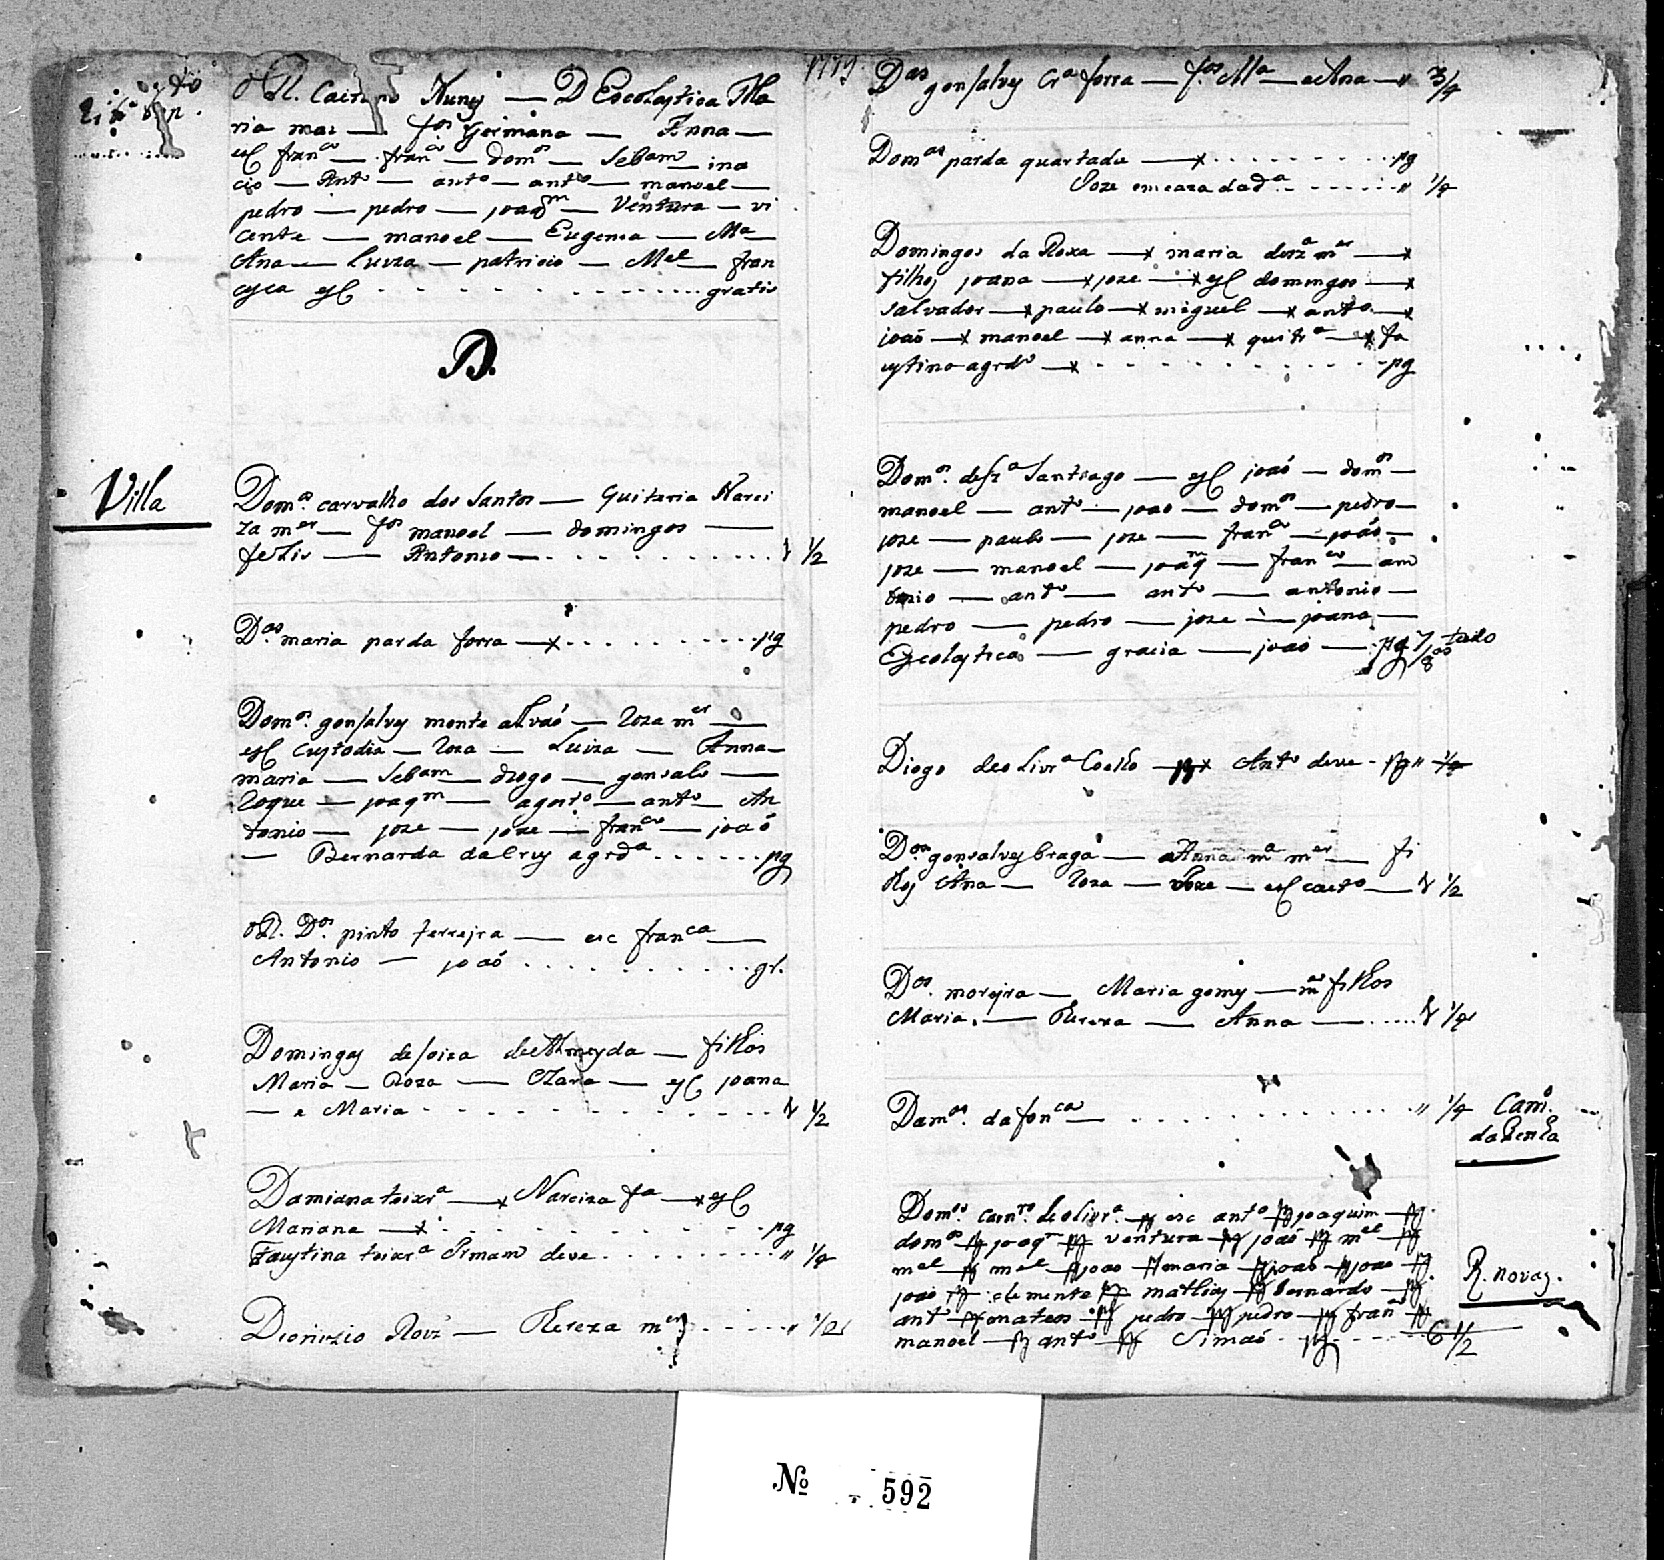 1779
O R. Caetano Nunes — D Escolastica Ma
ria mai — fos Germana — Anna —
esC franco — franco — domos — Sebam — ina
cio — Anto — anto — anto — manoel —
pedro — pedro — joaqm — Ventura — vi
cente — manoel — Eugenia — Ma —
Ana — Luiza — patricio — Mel — fran
cysca esC . . . . . . . . . . . . gratis
D.
Villa
Domos carvalho dos Santos — Quitaria Narci
za mer — fos manoel — domingos —
felis — Antonio — . . . . . . . . . 1/2
Dos maria parda forra —x . . . . . . . pg
Domos gonsalves monte alvaó — Roza mer —
esC Custodia — Roza — Luiza — Anna —
maria — Sebam — diogo — gonsalo —
Roque — joaqm — agosto — anto — An
tonio — joze — joze — franco — joaó
— Bernarda da Crus agrda . . . . . . pg
O R. Dos pinto ferrejra — esc franca —
Antonio — joaó . . . . . . . . . gr.
Domingos de soiza de Almeyda — filhos
Maria — Roza — Clara — esC joana
— e Maria . . . . . . . . . . . 1/2
Damiana teixra —x Narciza fa —x esC
Mariana —x . . . . . . . . . . . pg
Faustina teixra Irmam deve . . . . . . . " 1/4
Dionizio Roiz — Thereza mer . . . . . " 1/2
Dos gonsalves Cra forra — fos Ma — e Ana — " 3/4
Domas parda quartada —x . . . . . . . . pg
Joze em caza dada . . . . . . " 1/4
Domingos da Roxa —x maria mer —x
filhos joana —x joze —x esC domingos —x
salvador —x paulo —x miguel —x anto —x
joaó —x manoel —x anna —x quitra —x fa
ustino agrdo —x . . . . . . . . . . . pg
Domos Santiago — esC joaó — domos —
manoel — anto — joao — domos — pedro —
joze — paulo — joze — franco — joaó —
joze — manoel — joaqm — franco — an
tonio — anto — anto — antonio —
pedro — pedro — joze — joana —
Escolastica — gracia — joaó — pg tudo
Diogo de olivra Coelho — pg x Anto deve - pg " 1/4
Dos gonsalves braga — Anna ma mer — fi
lhos Ana — Roza — Joze — esC caeto — 1/2
Dos morejra — Maria gomes — mer filhos
Maria — Thereza — Anna — . . . . . 1/4
Damos da fonca — . . . . . . . . . . . . " 1/4
Camo
da penha
Domos carnro de olivra pg esc anto pg joaquim pg
domos pg joaqm pg ventura pg joaó pg mel pg
mel pg mel pg joao pg maria pg joaó pg joao pg
joao pg clemente pg mathias pg bernardo pg
anto pg mateos pg pedro pg pedro pg franco pg
manoel pg anto pg Simaó pg . . . . . . 6 1/2
R. novas.
No 592